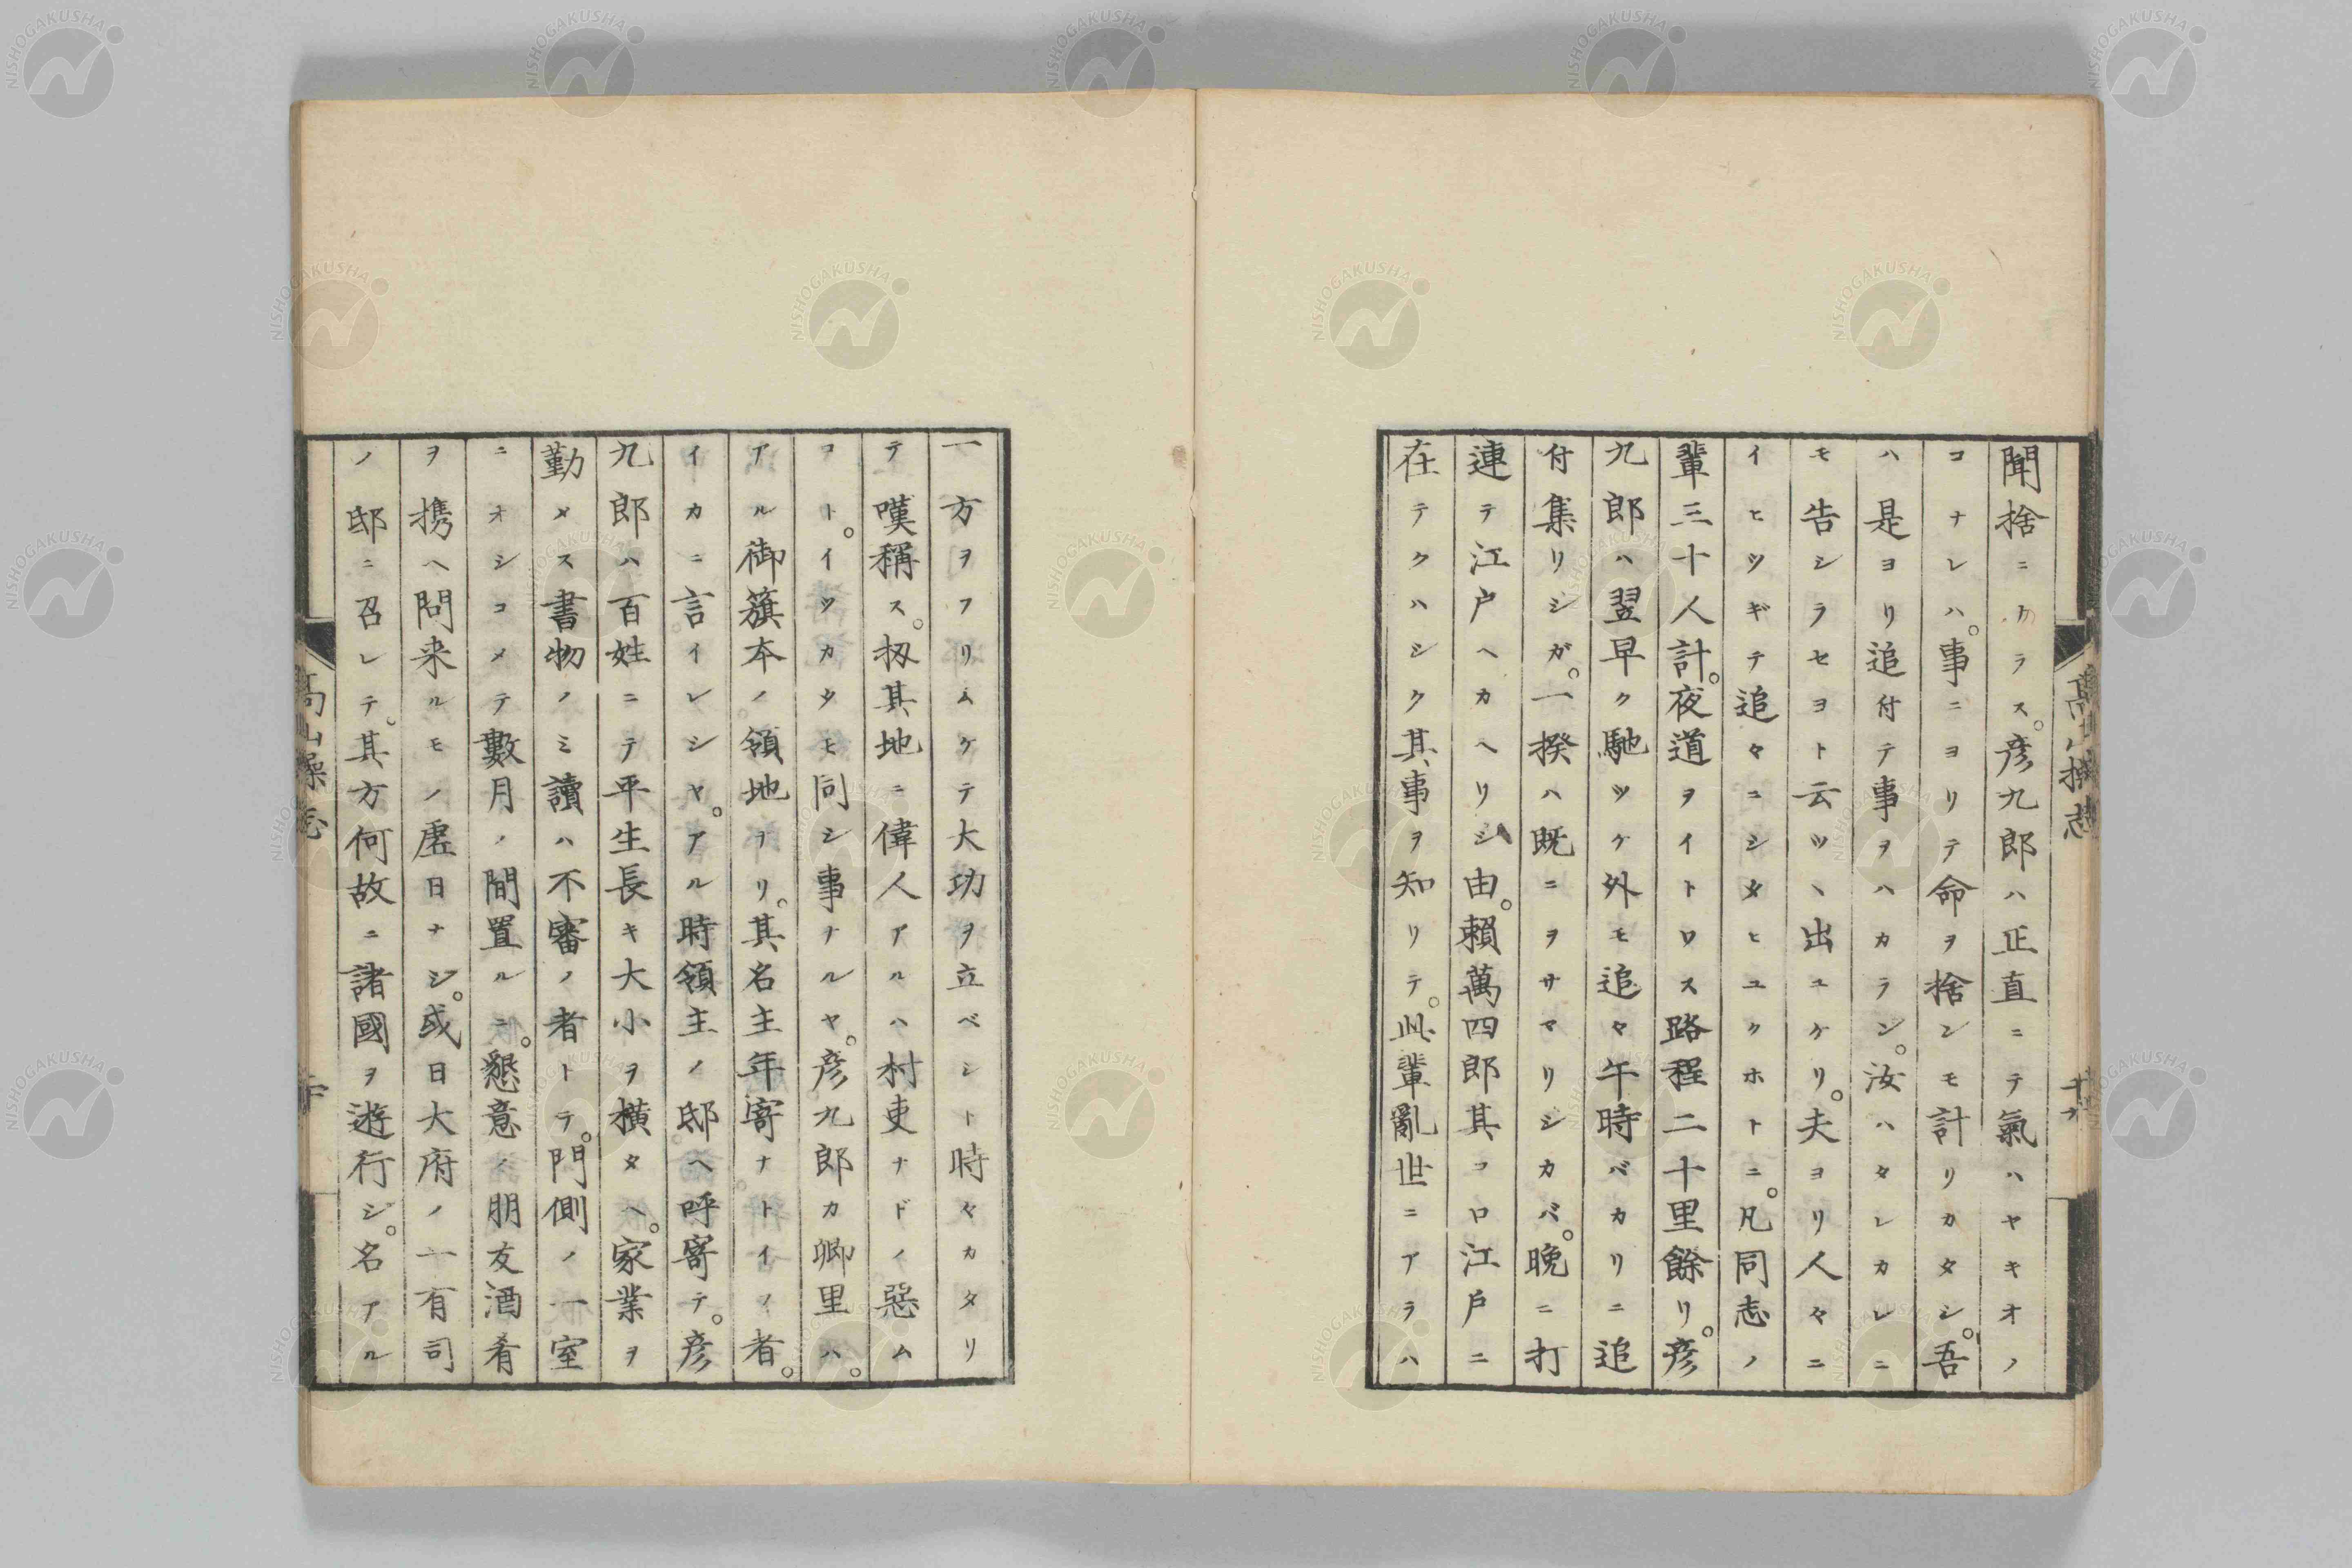 聞捨ニカラス。彦九郎ハ正直ニテ氣ハヤキオノ
コナレハ。事ニヨリテ命ヲ捨ンモ計リカタシ。吾
ハ是ヨリ追付テ事ヲハカラン。汝ハタレカレニ
モ告シラセヨト云ツヽ出ユケリ。夫ヨリ人々ニ
イヒツギテ追々ニシタヒユクホトニ。凡同志ノ
輩三十人計。夜道ヲイトワス路程二十里餘リ。彦
九郎ハ翌早ク馳ツケ外モ追々午時バカリニ追
付集リシガ。一揆ハ既ニヲサマリシカバ。晩ニ打
連テ江戸ヘカヘリシ由。頼萬四郎其コロ江戸ニ
在テクハシク其事ヲ知リテ。此輩亂世ニアラハ
一方ヲフリムケテ大功ヲ立ベシト時々カタリ
テ嘆稱ス。扨其地ニ偉人アルハ村吏ナドノ惡ム
コト。イツカタモ同シ事ナルヤ。彦九郎カ郷里ハ。
アル御籏本ノ領地ナリ。其名主年寄ナトイノ者。
イカニ言イレシヤ。アル時領主ノ邸ヘ呼寄テ。彦
九郎ハ百姓ニテ平生長キ大小ヲ横タヘ。家業ヲ
勤メス書物ノミ讀ハ不審ノ者トテ。門側ノ一室
ニオシコメテ數月ノ間置ルニ。懇意ノ朋友酒肴
ヲ携ヘ問来ルモノ虚日ナシ。或日大府ノ一有司
ノ邸ニ召レテ。其方何故ニ諸國ヲ遊行シ。名アル
NISHOGAKUSHA